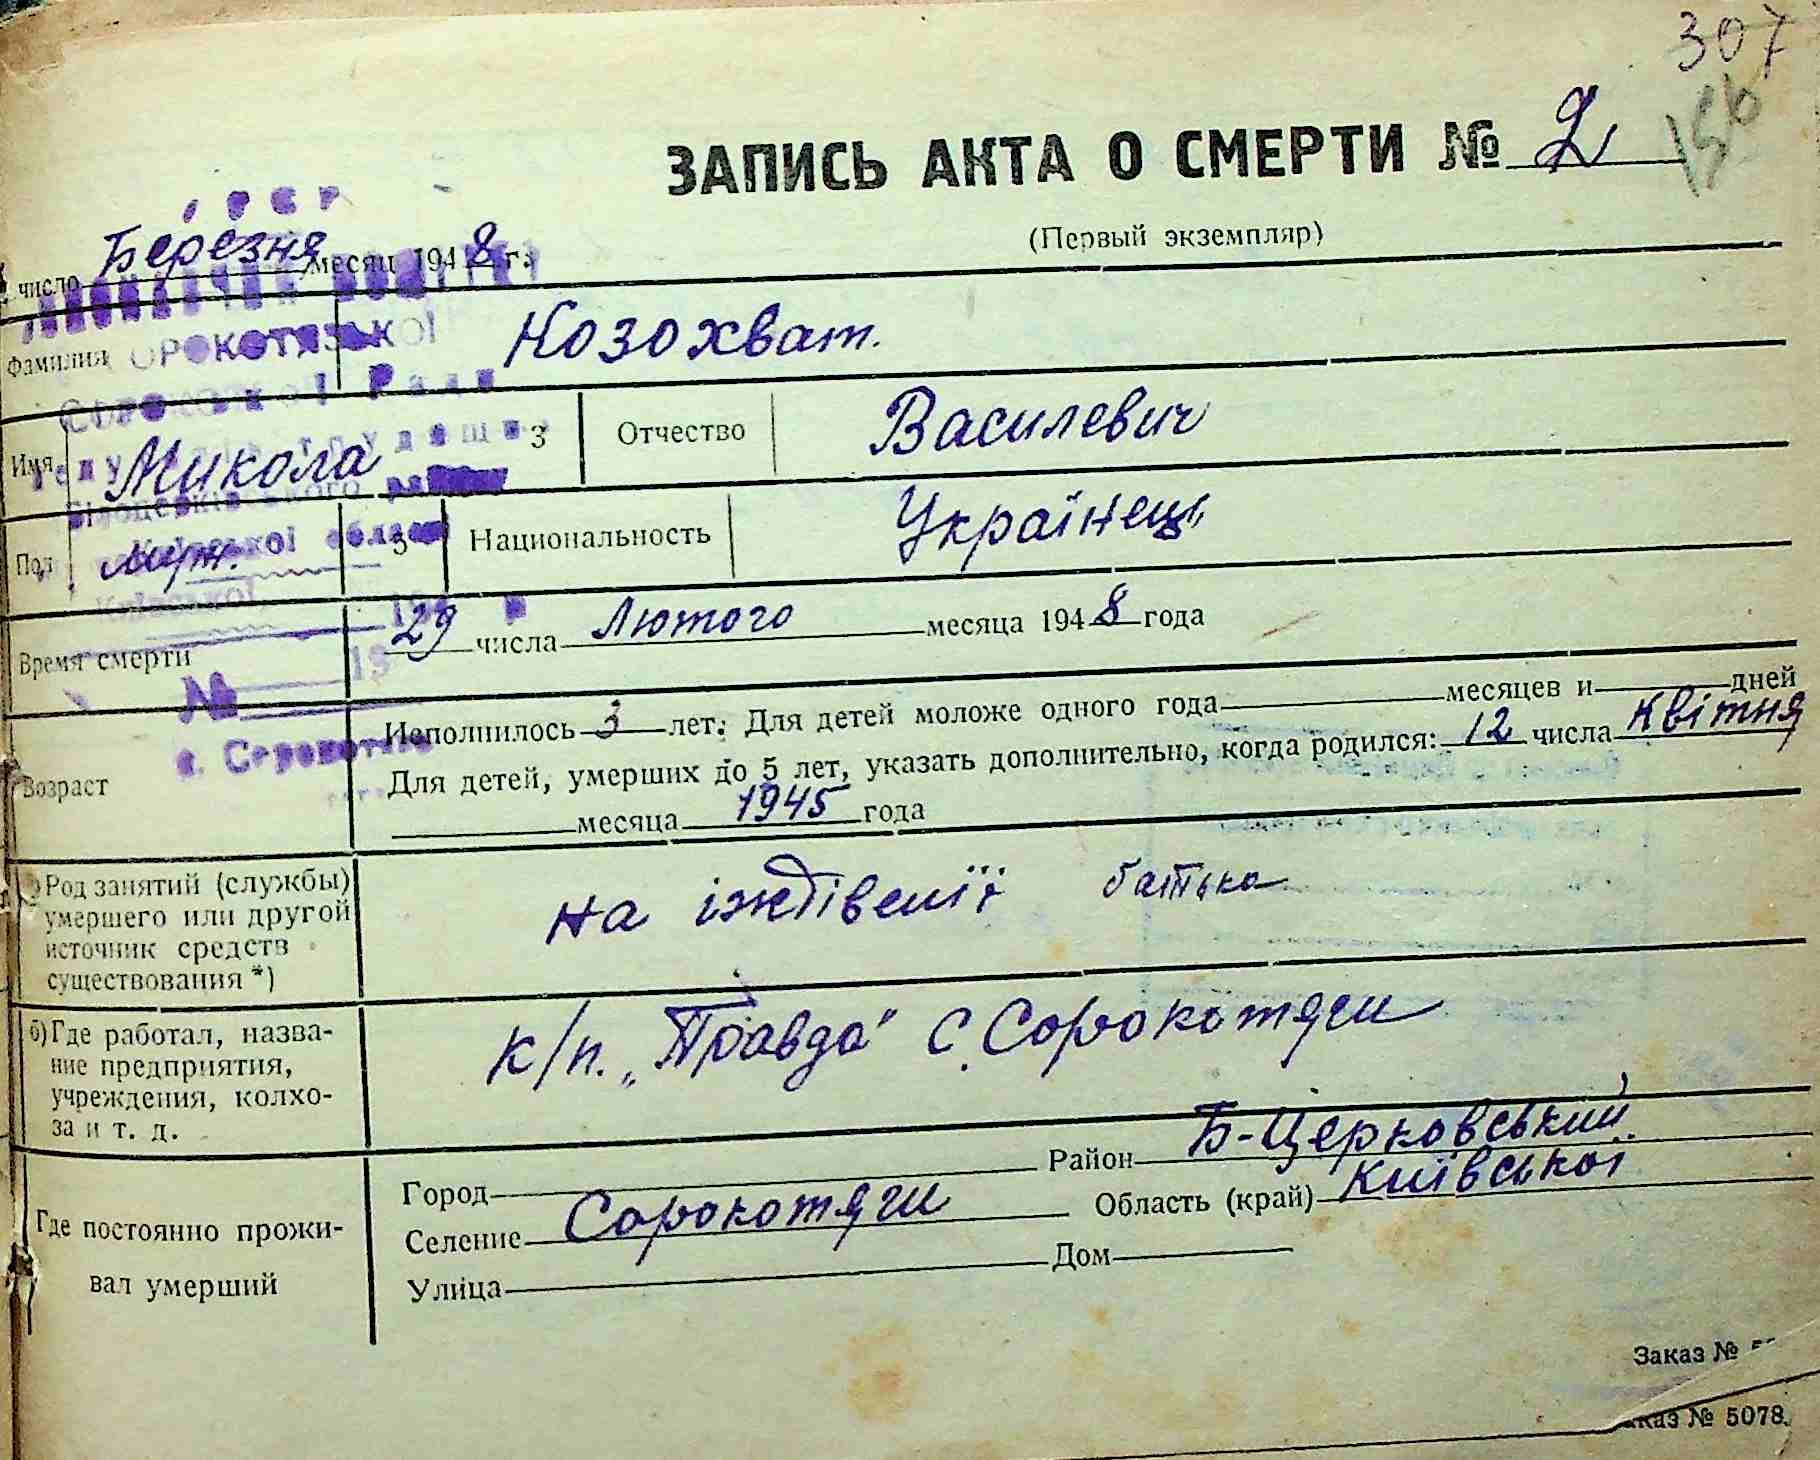 307
156
ЗАПИСЬ АКТА О СМЕРТИ № 2
(Первый экземпляр)
число Березня месяц 1948 г.
Фамилия Козохват.
Имя Микола 3 Отчество Василевич
Пол муж. 5 Национальность Українець
Время смерти 29 числа Лютого месяца 1948 года
Возраст
Исполнилось 3 лет. Для детей моложе одного года месяцев и дней
Для детей, умерших до 5 лет, указать дополнительно, когда родился: 12 числа Квітня
месяца 1945 года
Род занятий (службы)
умершего или другой
источник средств
существования *)
на іждівенії батька
б) Где работал, назва-
ние предприятия,
учреждения, колхо-
за и т. д.
к/п. „Правда" с. Сорокотяги
Где постоянно прожи-
вал умерший
Город Район Б-Церковський
Селение Сорокотяги Область (край) Київської
Улица Дом
Заказ №
аказ № 5078.
РСР
ОРОКОТЯЗЬКОЇ
Ради
Білоцерківського
Київської області
Київської
194 р
19
№
с. Сорокотяги